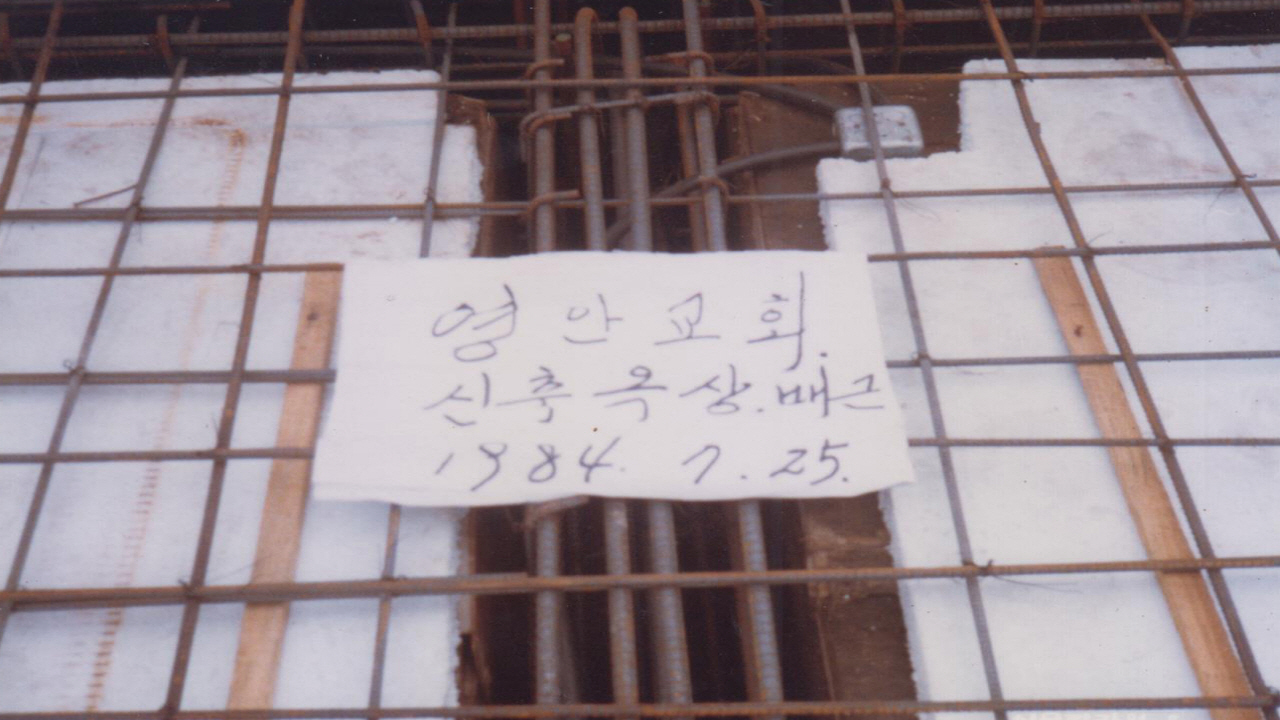 영 안 교 회.
신 축 옥 상. 배근
1984. 7. 25.